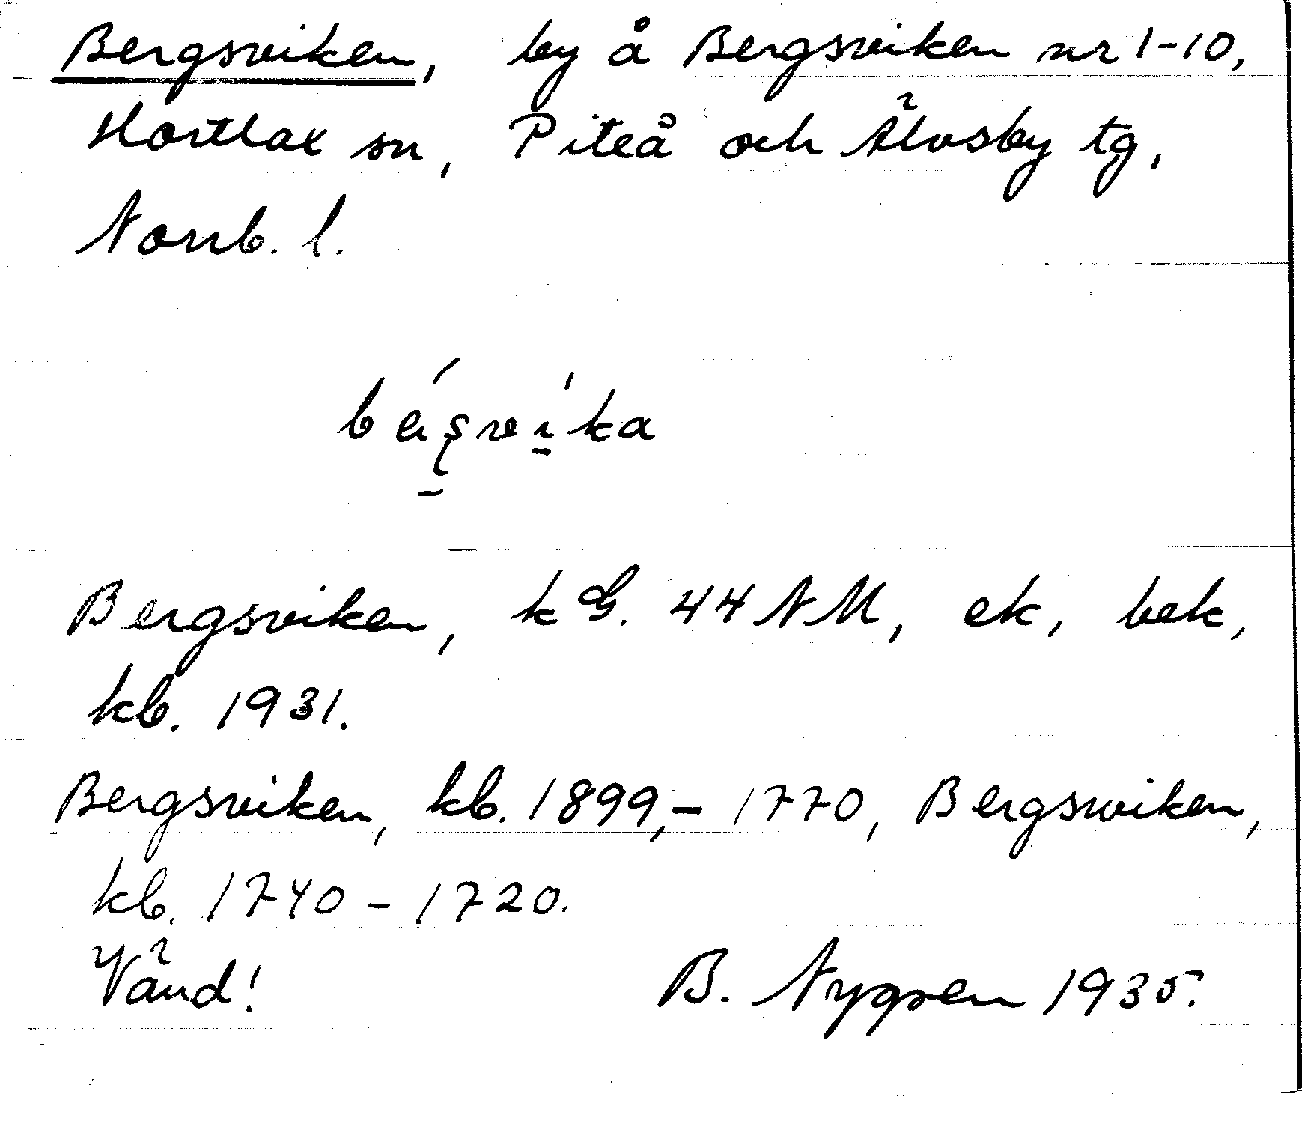 Bergsviken, by å Bergsviken nr 1-10,
Hortlax sn, Piteå och Älvsby tg,
Norrb. l.
Bergsviken, kG. 44 NM, ek, bek,
kb. 1931.
Bergsviken, kb. 1899,- 1770, Bergswiken,
kb. 1740 - 1720.
Vänd! B. Nygren 1935.